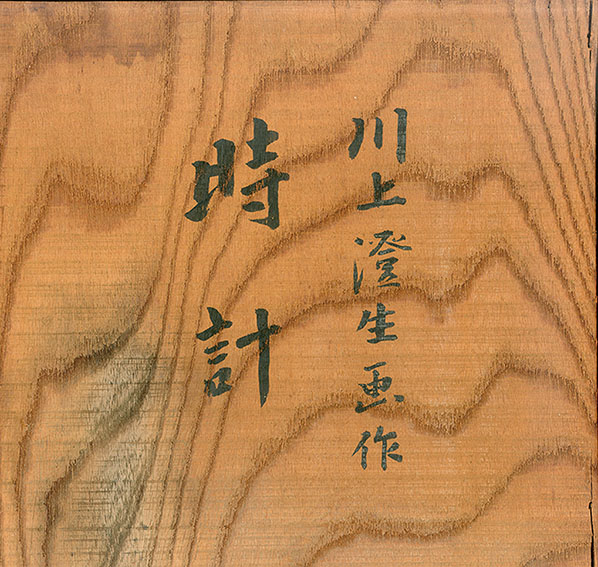 川上澄生画作
時計